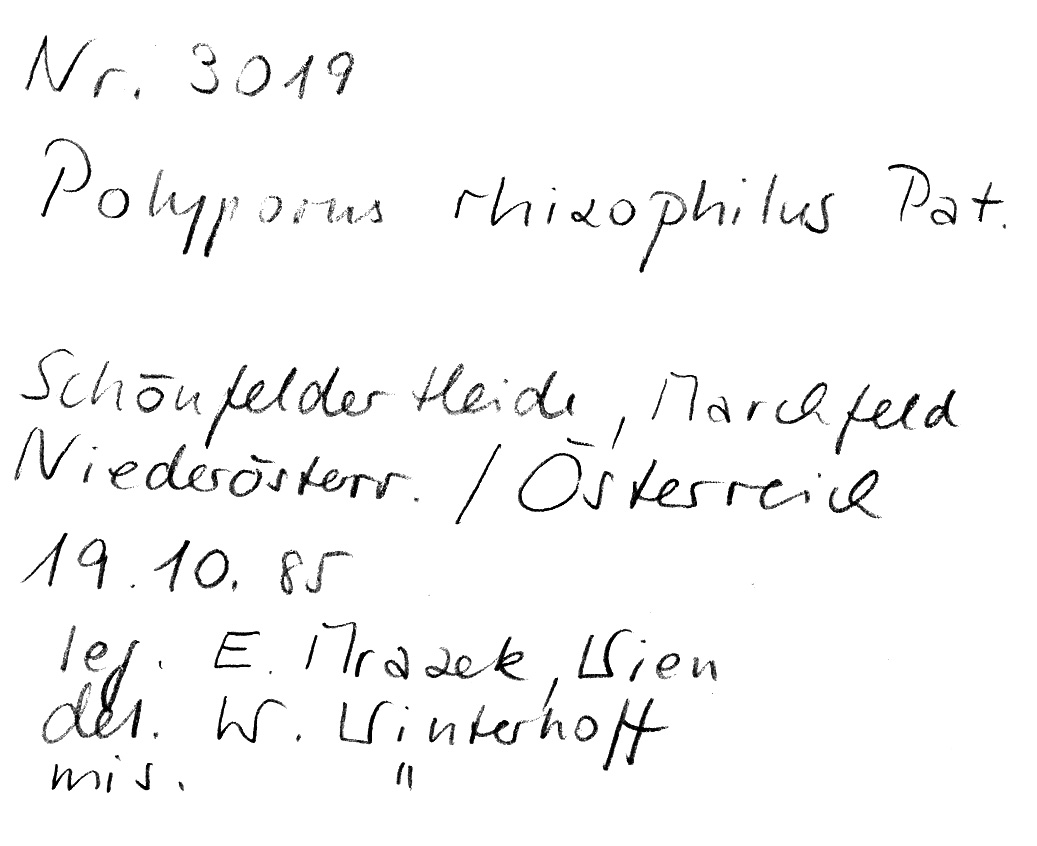 Nr. 3019
Polyporus rhizophilus Pat.
Schönfelder Heide, Marchfeld
Niederösterr. / Österreich
19.10.85
leg. E. Mrazek, Wien
det. W. Winterhoff
mis. "